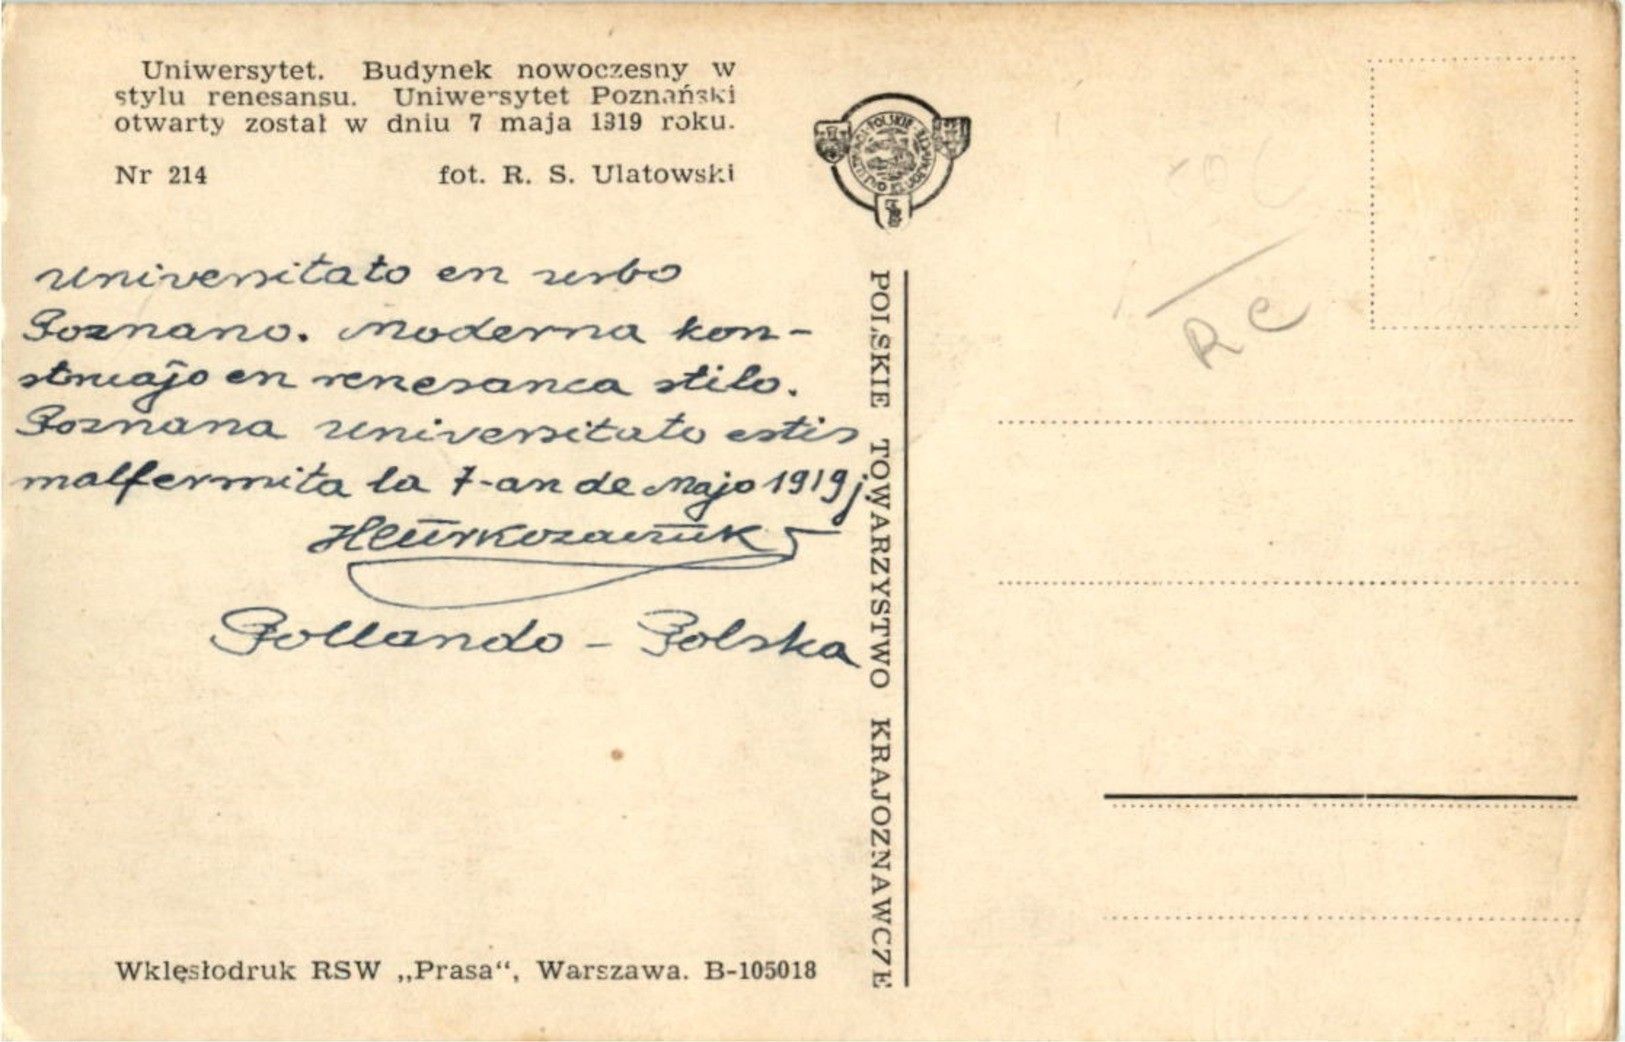 Uniwersytet. Budynek nowoczesny w
stylu renesansu. Uniwersytet Poznański
otwarty został w dniu 7 maja 1919 roku.
Nr 214 fot. R. S. Ulatowski
Universitato en urbo
Poznano. Moderna kon-
struaĵo en renesanca stilo.
Poznana universitato estis
malfermita la 7-an de Majo 1919 j.
Pollando - Polska
Wklęsłodruk RSW „Prasa“, Warszawa. B-105018
POLSKIE TOWARZYSTWO KRAJOZNAWCZE
RC